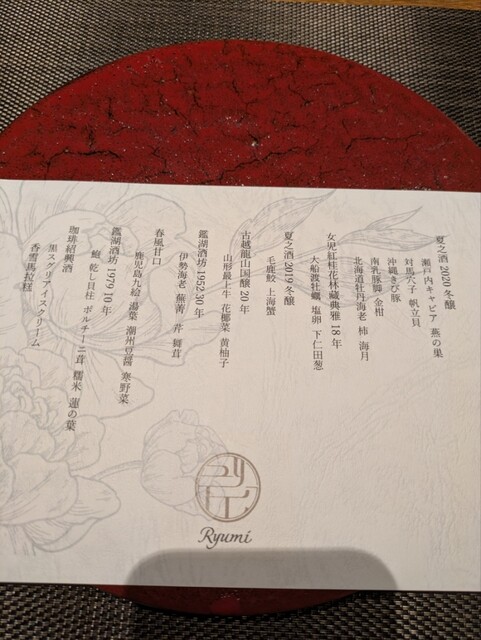 夏之酒 2020 冬醸
瀬戸内キャビア 燕の巣
対馬穴子 帆立貝
沖縄きび豚
南乳豚脚 金柑
北海道牡丹海老 柿 海月
女児紅桂花林蔵典雅 18 年
大船渡牡蠣 塩卵 下仁田葱
夏之酒 2019 冬醸
毛鹿鮫 上海蟹
古越龍山国醸 20 年
山形最上牛 花椰菜 黄柚子
鑑湖酒坊 1952 30 年
伊勢海老 蕪菁 芹 舞茸
春風甘口
鹿児島九絵 湯葉 潮州豆醤 寒野菜
鑑湖酒坊 1979 10 年
鮑 乾し貝柱 ポルチーニ茸 糯米 蓮の葉
珈琲紹興酒
黒スグリアイスクリーム
香雪馬拉糕
Ryumi